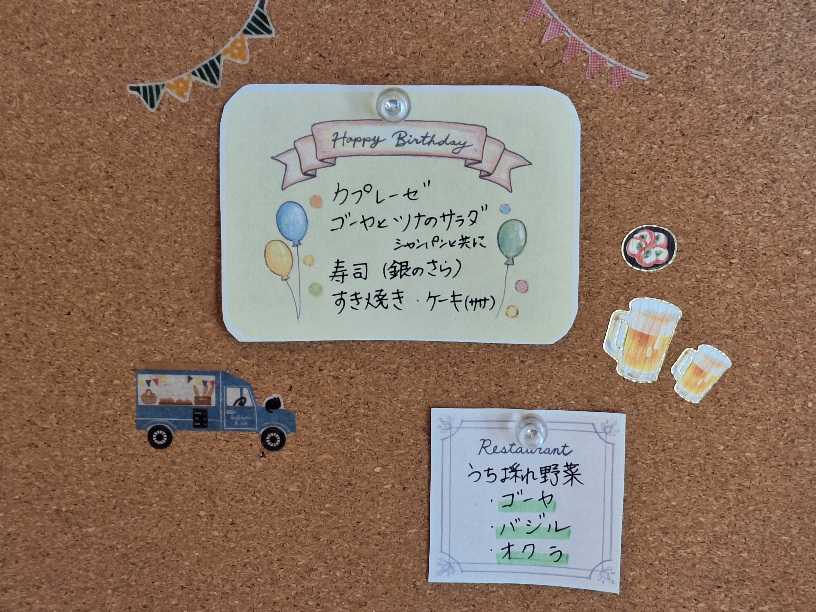 Happy Birthday
カプレーゼ
ゴーヤとツナのサラダ
シャンパンと共に
寿司（銀のさら）
すき焼き・ケーキ(ササ)
Restaurant
うち採れ野菜
・ゴーヤ
・バジル
・オクラ